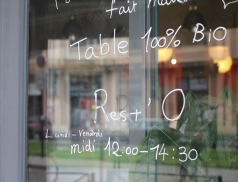 fait mais
Table 100% BiO
Rest'O
Lundi - Vendredi
midi 12:00-14:30